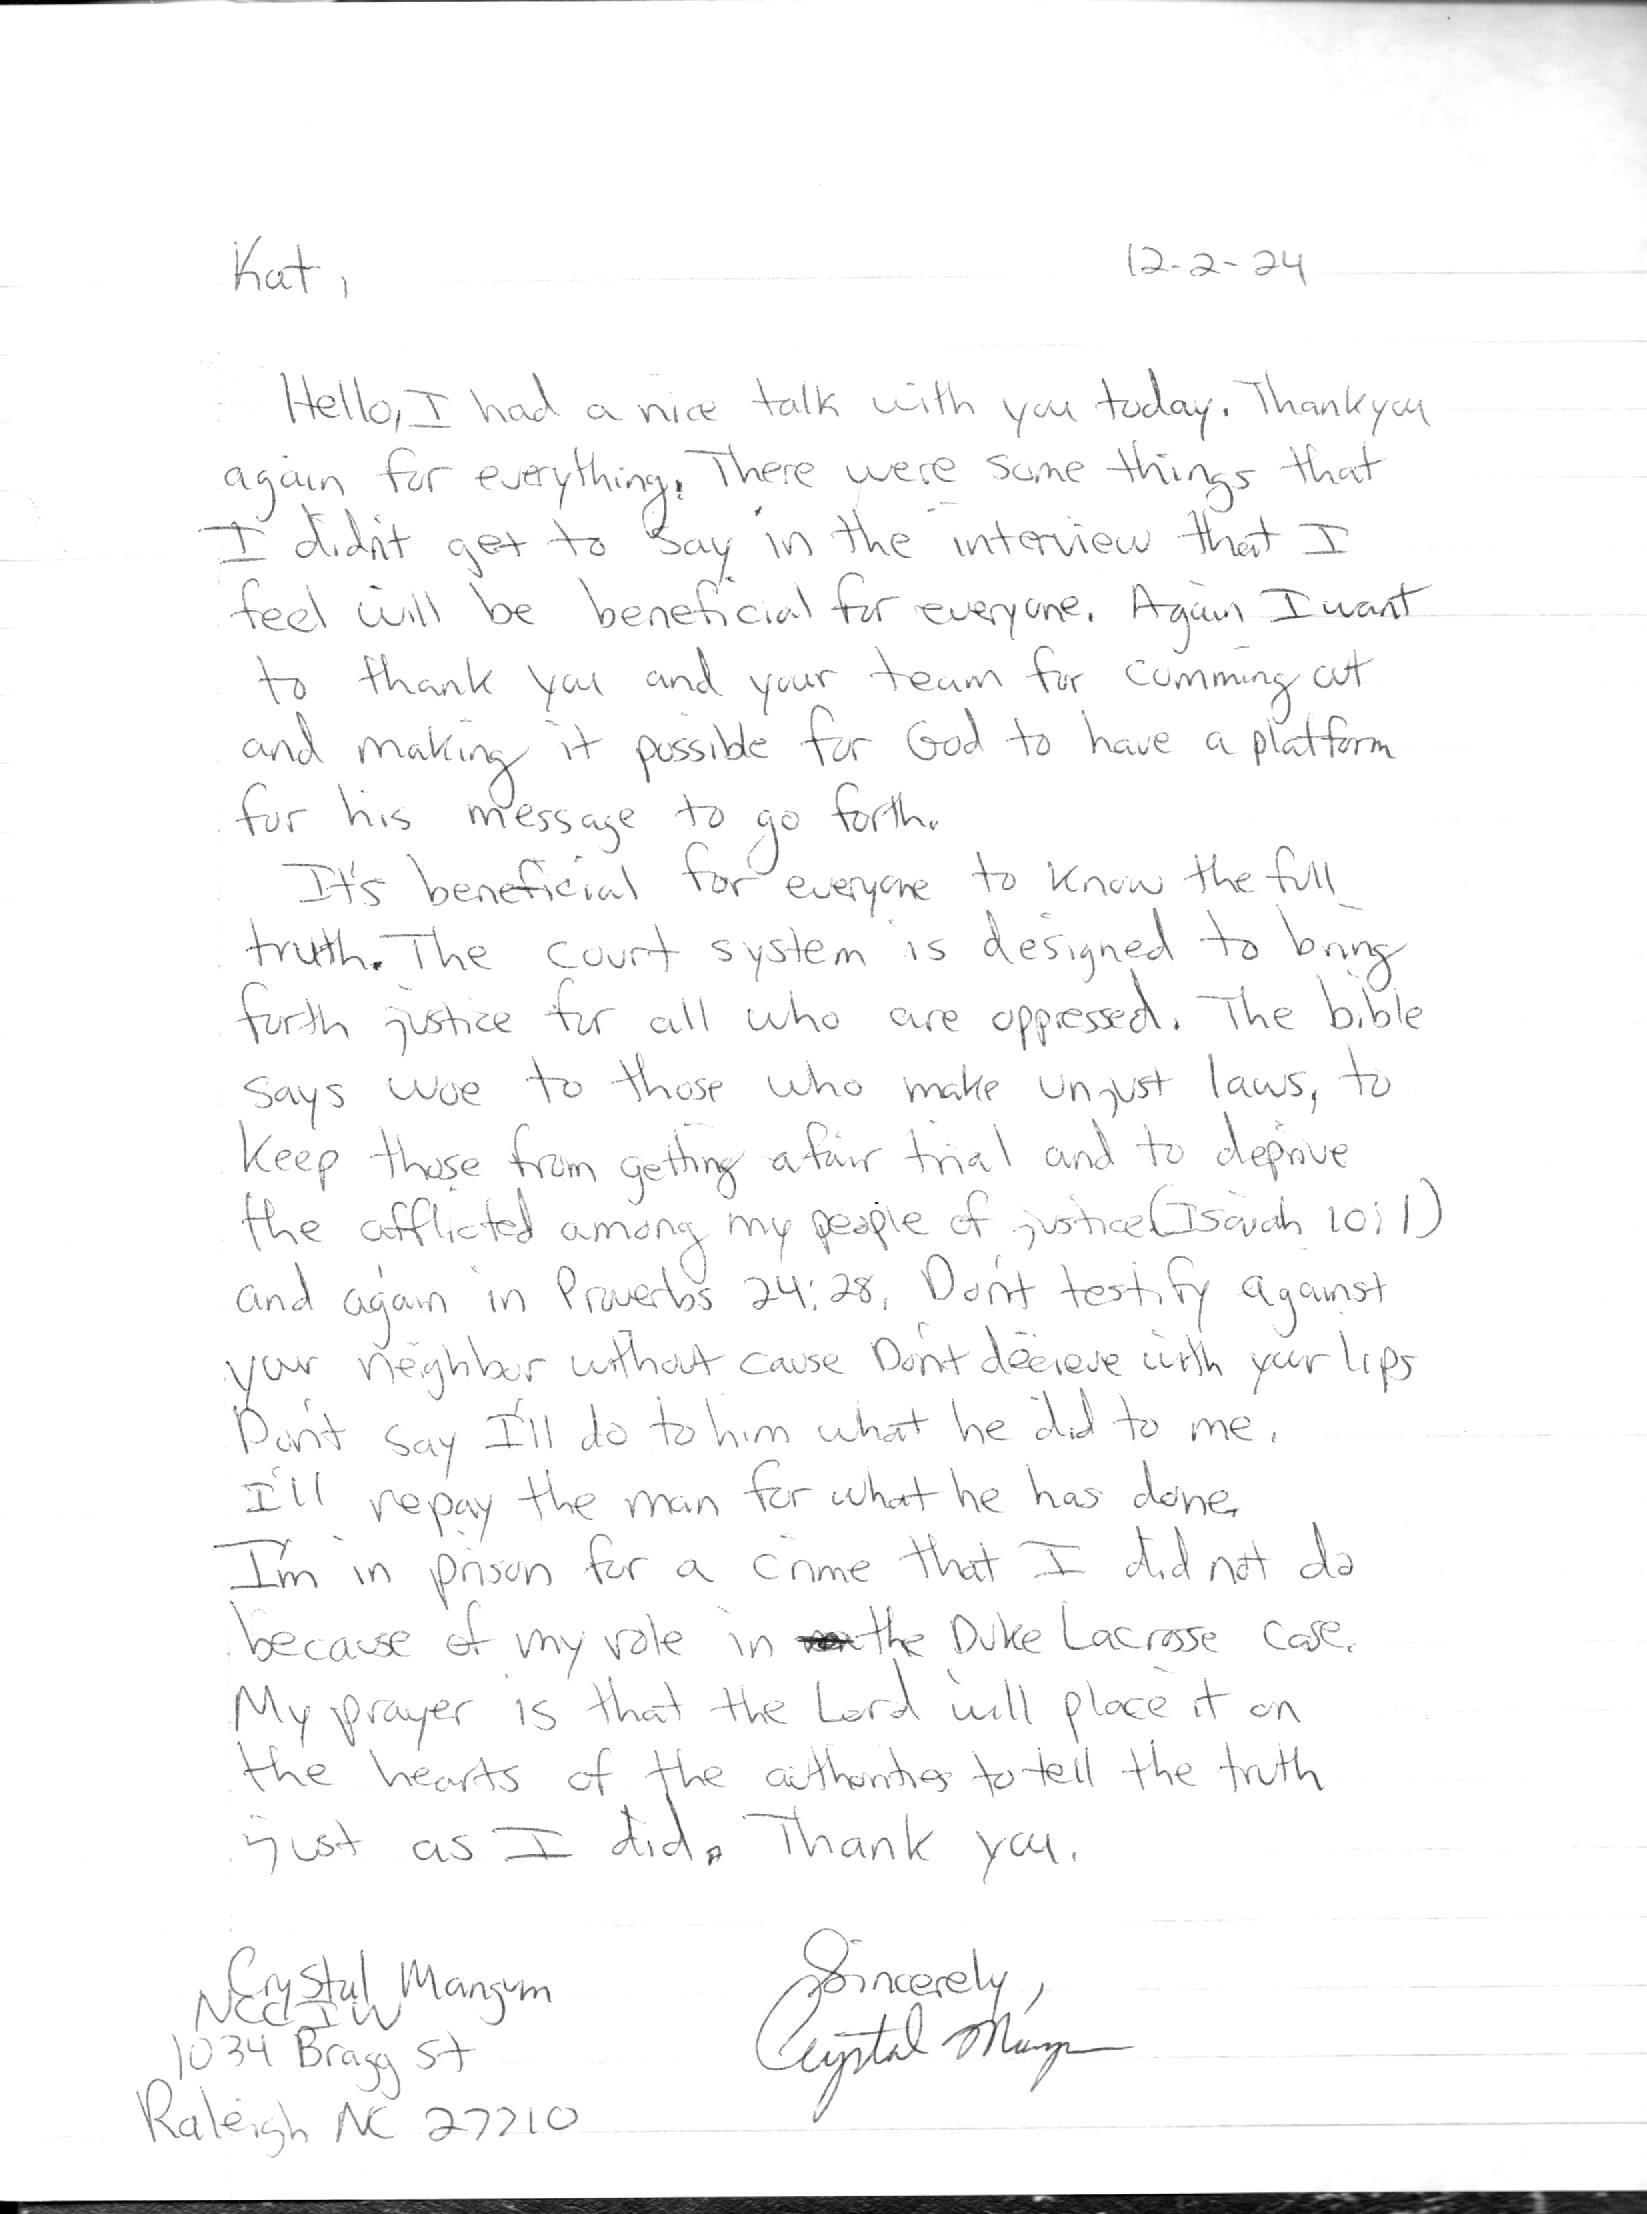 Kat,
12-2-24
Hello, I had a nice talk with you today. Thankyou
again for everything. There were some things that
I didn't get to say in the interview that I
feel will be beneficial for everyone. Again I want
to thank you and your team for cumming out
and making it possible for God to have a platform
for his message to go forth.
It's beneficial for everyone to know the full
truth. The court system is designed to bring
forth justice for all who are oppressed. The bible
says woe to those who make unjust laws, to
keep those from getting a fair trial and to deprive
the afflicted among my people of justice (Isaiah 10:1)
and again in Proverbs 24:28. Don't testify against
your neighbor without cause Don't decieve with your lips
Don't say I'll do to him what he did to me.
I'll repay the man for what he has done.
I'm in prison for a crime that I did not do
because of my role in the Duke Lacrosse case.
My prayer is that the Lord will place it on
the hearts of the authorities to tell the truth
just as I did. Thank you.
Sincerely,
Crystal Mangum
Crystal Mangum
NCCIW
1034 Bragg St
Raleigh NC 27710